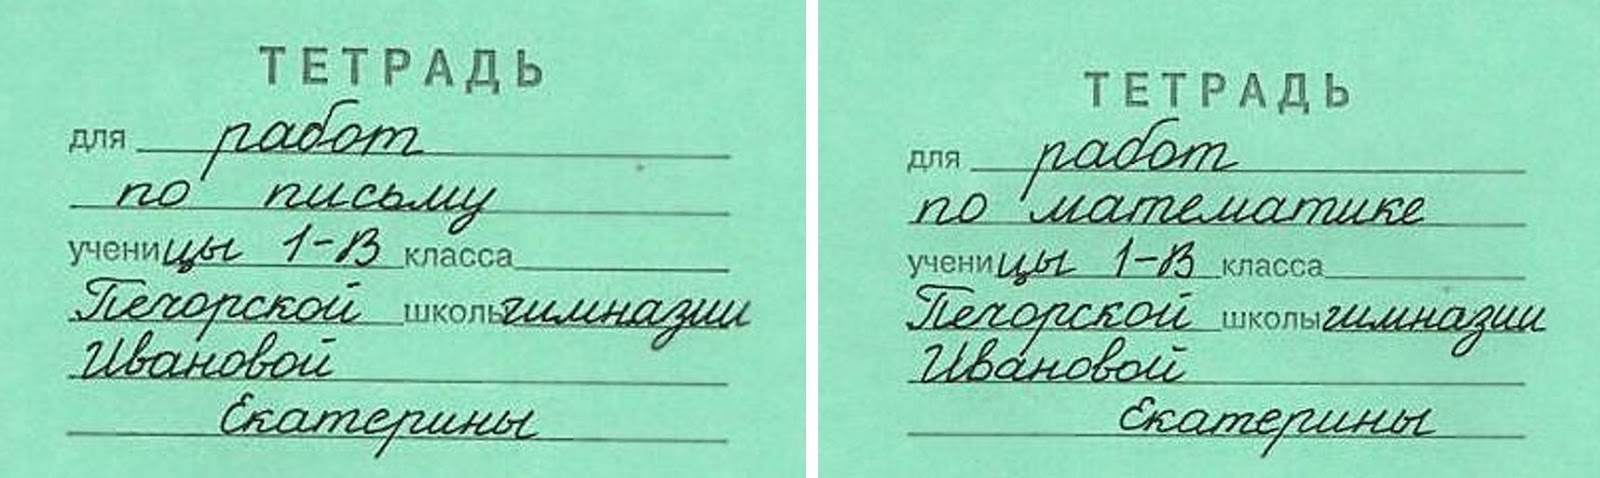 ТЕТРАДЬ
для работ
по письму
ученицы 1-В класса
Печорской школы гимназии
Ивановой
Екатерины
ТЕТРАДЬ
для работ
по математике
ученицы 1-В класса
Печорской школы гимназии
Ивановой
Екатерины